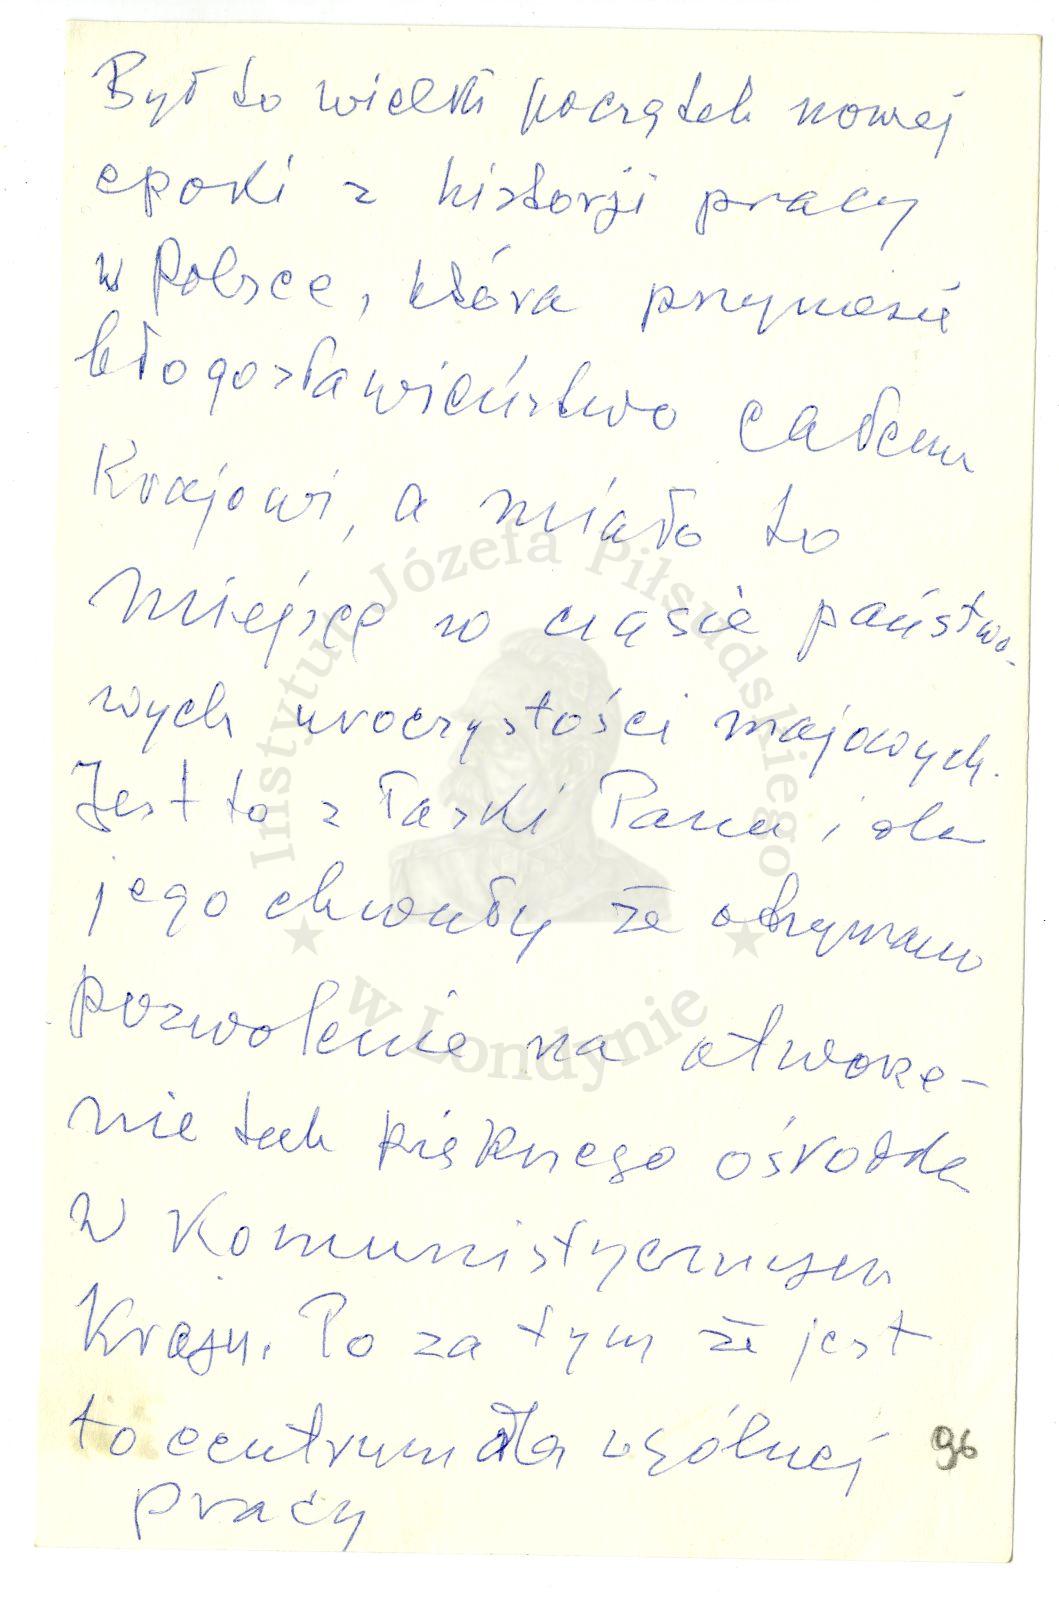 Był to wielki początek nowej
epoki z historji pracy
w Polsce, która przyniesie
błogosławieństwo całemu
Krajowi, a miało to
miejsce w czasie państwo-
wych uroczystości majowych.
Jest to z łaski Pana i dla
jego chwały że otrzymano
pozwolenie na otworze-
nie tak pięknego ośrodka
w Komunistycznym
Kraju. Po za tym że jest
to centrum dla wspólnej
pracy
96
Instytut Józefa Piłsudskiego
w Londynie